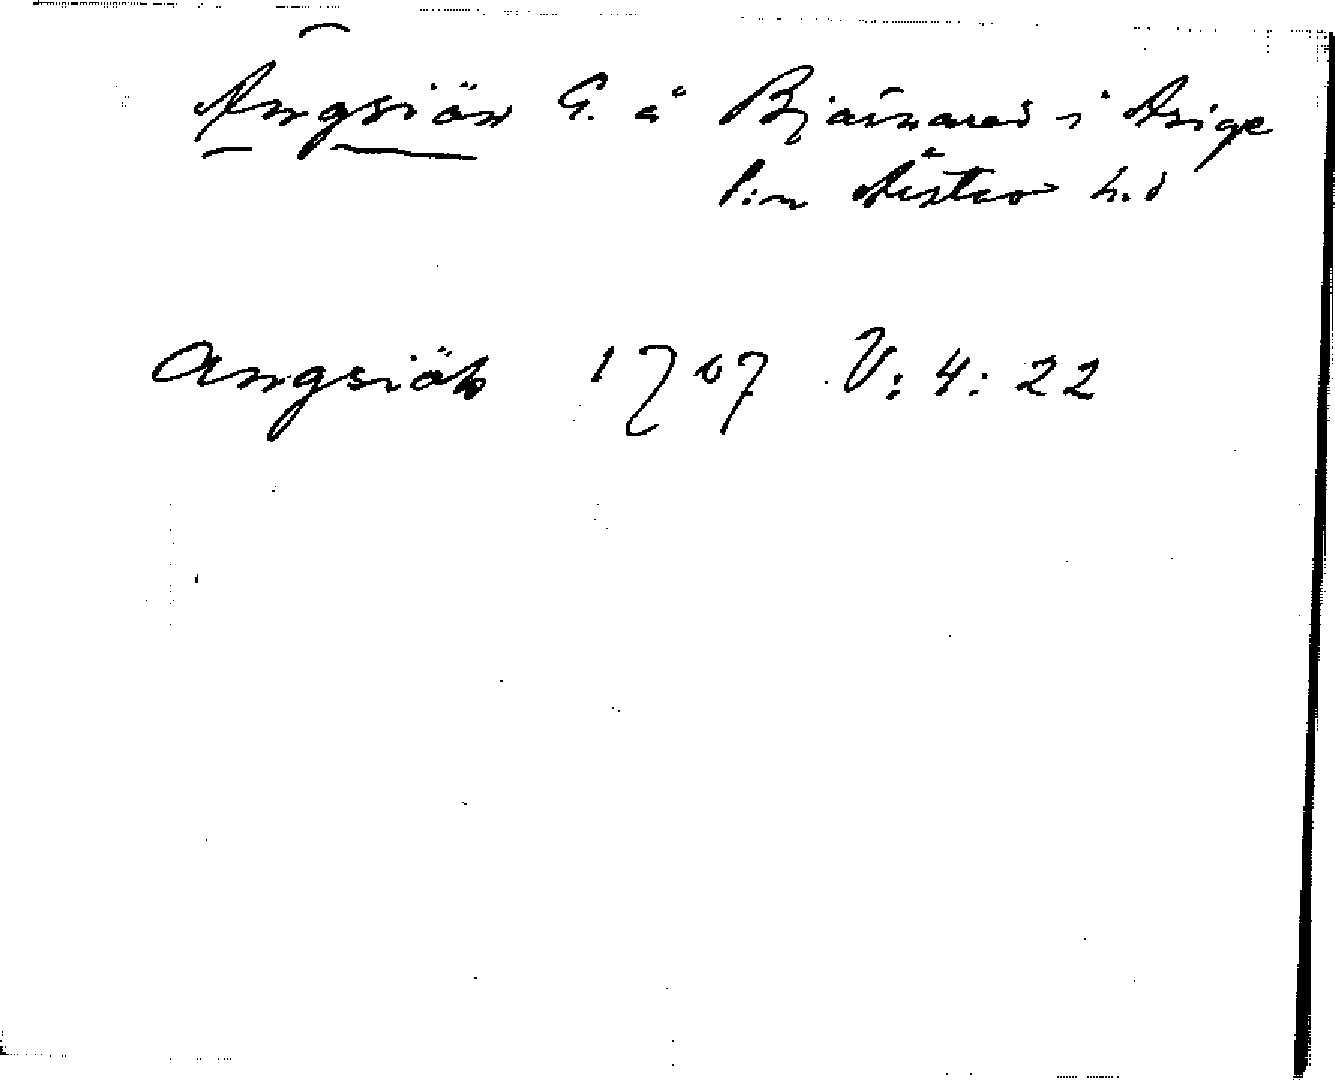 Ängsjön G. å Bjärnared i Asige
s:n Årstad h.d
Angsiöh 1707 V: 4: 22